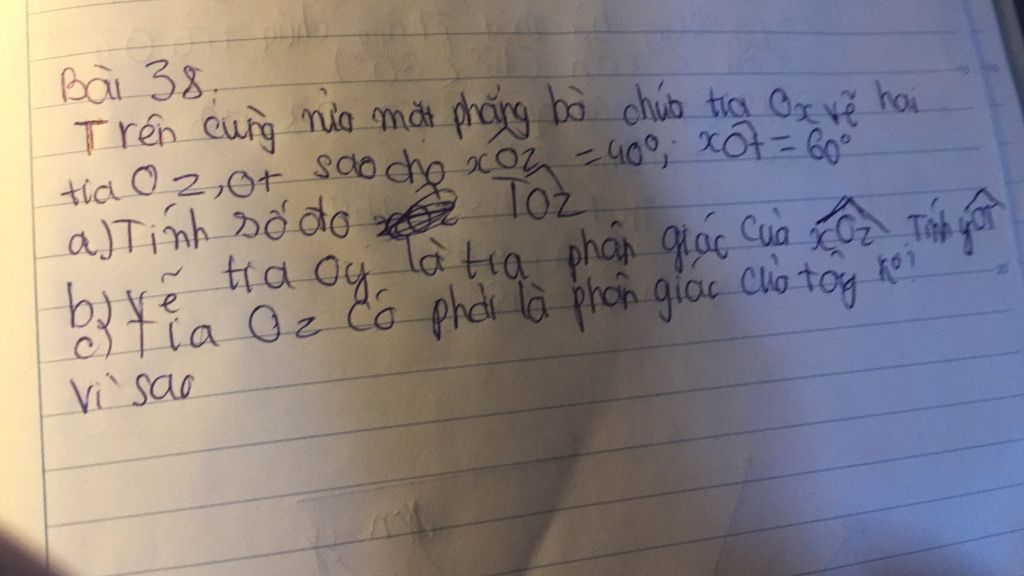 Bài 38.
Trên cùng nửa mặt phẳng bờ chứa tia Ox vẽ hai
tia Oz, Ot sao cho xOz = 40°; xOt = 60°
a) Tính số đo TOz
b) Vẽ tia Oy là tia phân giác của xOz Tính yOT
c) Tia Oz có phải là phân giác của tôy ko?
Vì sao